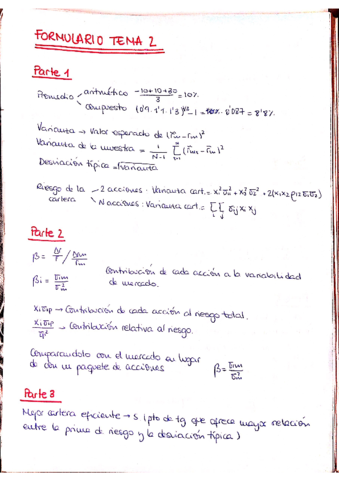 FORMULARIO TEMA 2
Parte 1
Promedio aritmético (-10+10+30)/3 = 10%
compuesto (0'9 · 1'1 · 1'3)^1/3 - 1 = 8'8%
Varianza → Valor esperado de (r̃m - rm)²
Varianza de la muestra = 1/(N-1) Σ (r̃m - rm)²
Desviación típica = √varianza
Riesgo de la cartera 2 acciones: Varianza cart. = x₁²σ₁² + x₂²σ₂² + 2(x₁x₂ρ₁₂σ₁σ₂)
N acciones: Varianza cart. = Σ Σ σij xi xj
Parte 2
βi = σim/σm² Contribución de cada acción a la variabilidad
de mercado.
xiσip → Contribución de cada acción al riesgo total.
xiσip/σp² → Contribución relativa al riesgo.
Comparandolo con el mercado en lugar
de con un paquete de acciones β = σim/σm²
Parte 3
Mejor cartera eficiente → S (pto de tg que ofrece mayor relación
entre la prima de riesgo y la desviación típica)